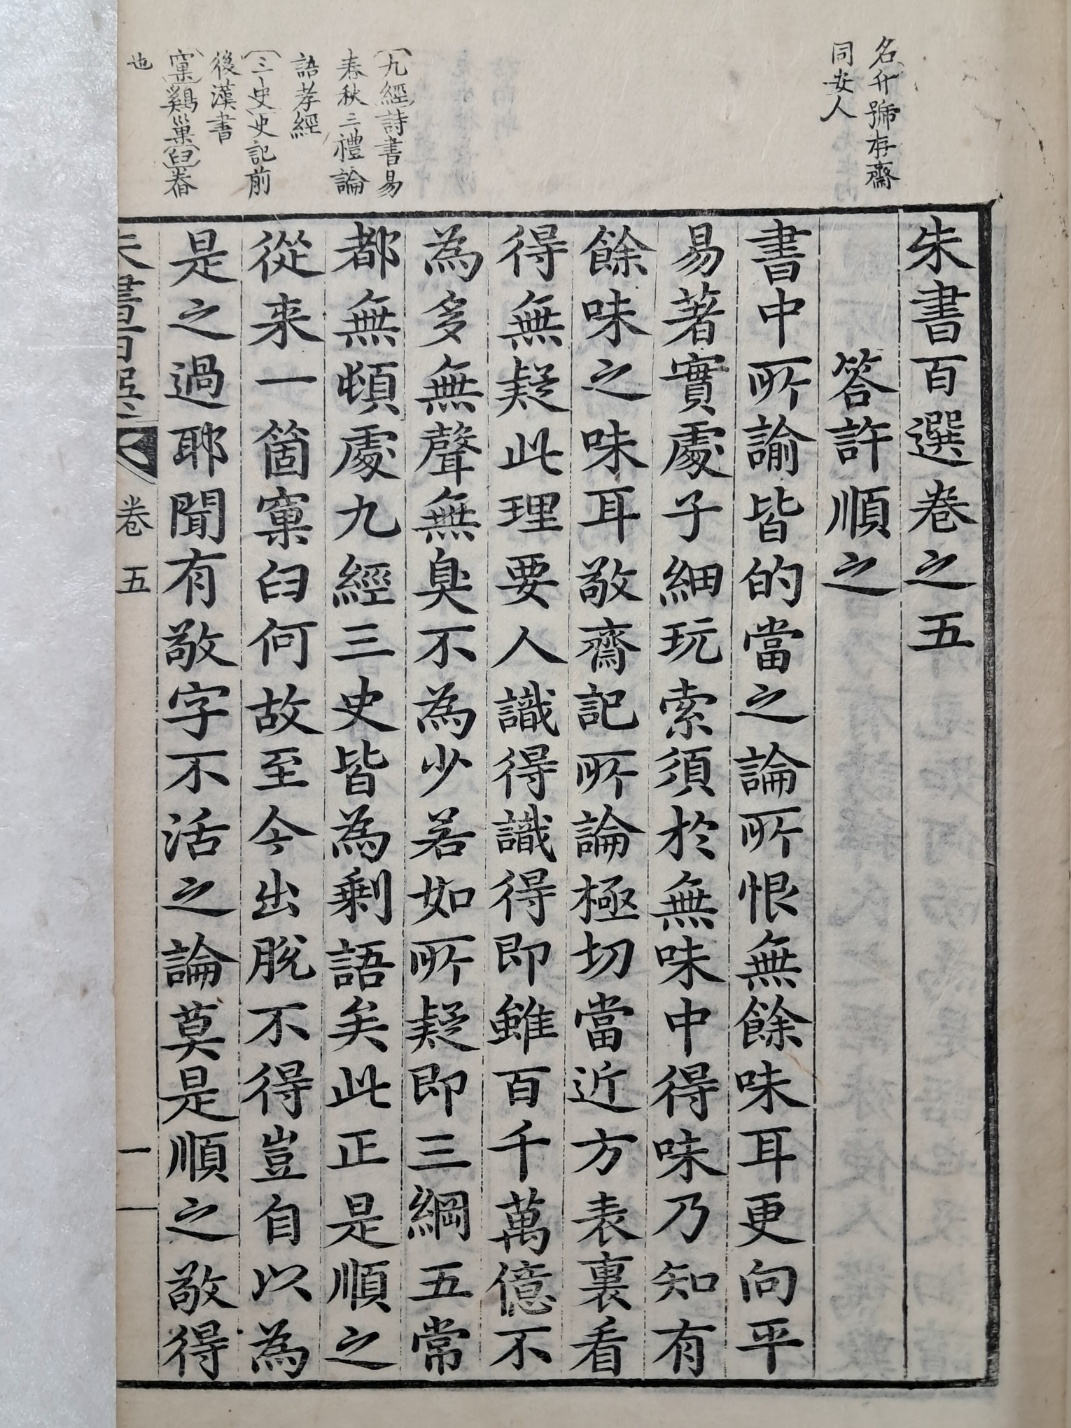 名升號存齋
同安人
(九經)詩書易
春秋三禮論
語孝經
(三史)史記前
後漢書
(窠)鷄巢(臼)舂
也
朱書百選卷之五
答許順之
書中所諭皆的當之論所恨無餘味耳更向平
易著實處子細玩索須於無味中得味乃知有
餘味之味耳敬齋記所論極切當近方表裏看
得無疑此理要人識得識得即雖百千萬億不
為多無聲無臭不為少若如所疑即三綱五常
都無頓處九經三史皆為剩語矣此正是順之
從来一箇窠臼何故至今出脫不得豈自以為
是之過耶聞有敬字不活之論莫是順之敬得
朱書百選 卷五 一